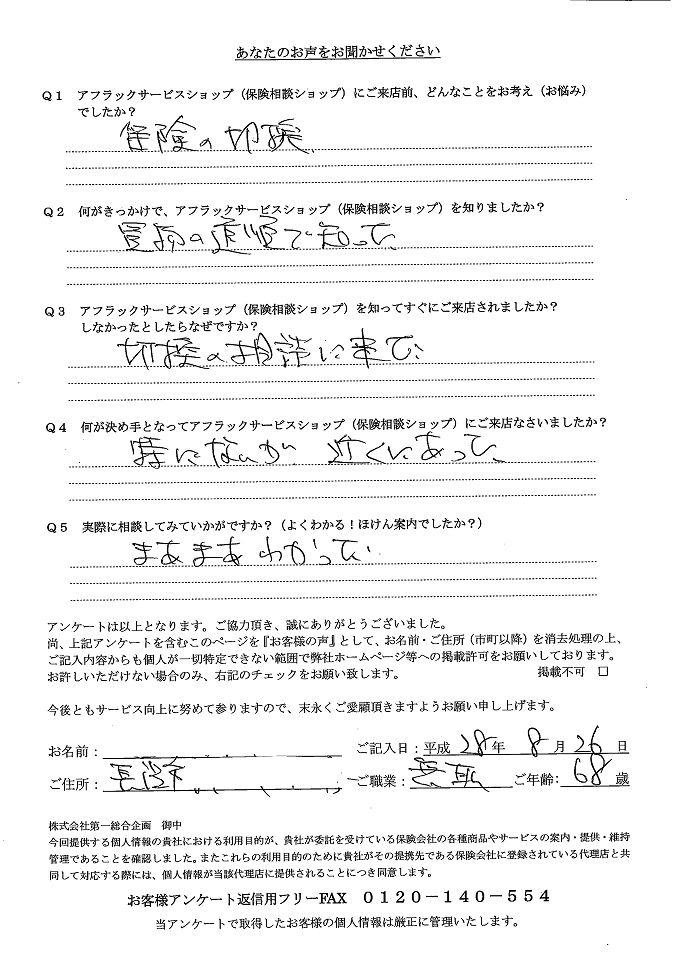 あなたのお声をお聞かせください
Q1 アフラックサービスショップ(保険相談ショップ)にご来店前、どんなことをお考え(お悩み)
でしたか?
保険の切換
Q2 何がきっかけで、アフラックサービスショップ(保険相談ショップ)を知りましたか?
の で知った
Q3 アフラックサービスショップ(保険相談ショップ)を知ってすぐにご来店されましたか?
しなかったとしたらなぜですか?
切換の相談に来た
Q4 何が決め手となってアフラックサービスショップ(保険相談ショップ)にご来店なさいましたか?
特にないが 近くにあった
Q5 実際に相談してみていかがですか?(よくわかる!ほけん案内でしたか?)
まあまあわかった
アンケートは以上となります。ご協力頂き、誠にありがとうございました。
尚、上記アンケートを含むこのページを『お客様の声』として、お名前・ご住所(市町以降)を消去処理の上、
ご記入内容からも個人が一切特定できない範囲で弊社ホームページ等への掲載許可をお願いしております。
お許しいただけない場合のみ、右記のチェックをお願い致します。 掲載不可 □
今後ともサービス向上に努めて参りますので、末永くご愛顧頂きますようお願い申し上げます。
お名前: ご記入日:平成 28 年 8 月 26 日
ご住所: ご職業: ご年齢: 68 歳
株式会社第一総合企画 御中
今回提供する個人情報の貴社における利用目的が、貴社が委託を受けている保険会社の各種商品やサービスの案内・提供・維持
管理であることを確認しました。またこれらの利用目的のために貴社がその提携先である保険会社に登録されている代理店と共
同して対応する際には、個人情報が当該代理店に提供されることにつき同意します。
お客様アンケート返信用フリーFAX 0120-140-554
当アンケートで取得したお客様の個人情報は厳正に管理いたします。